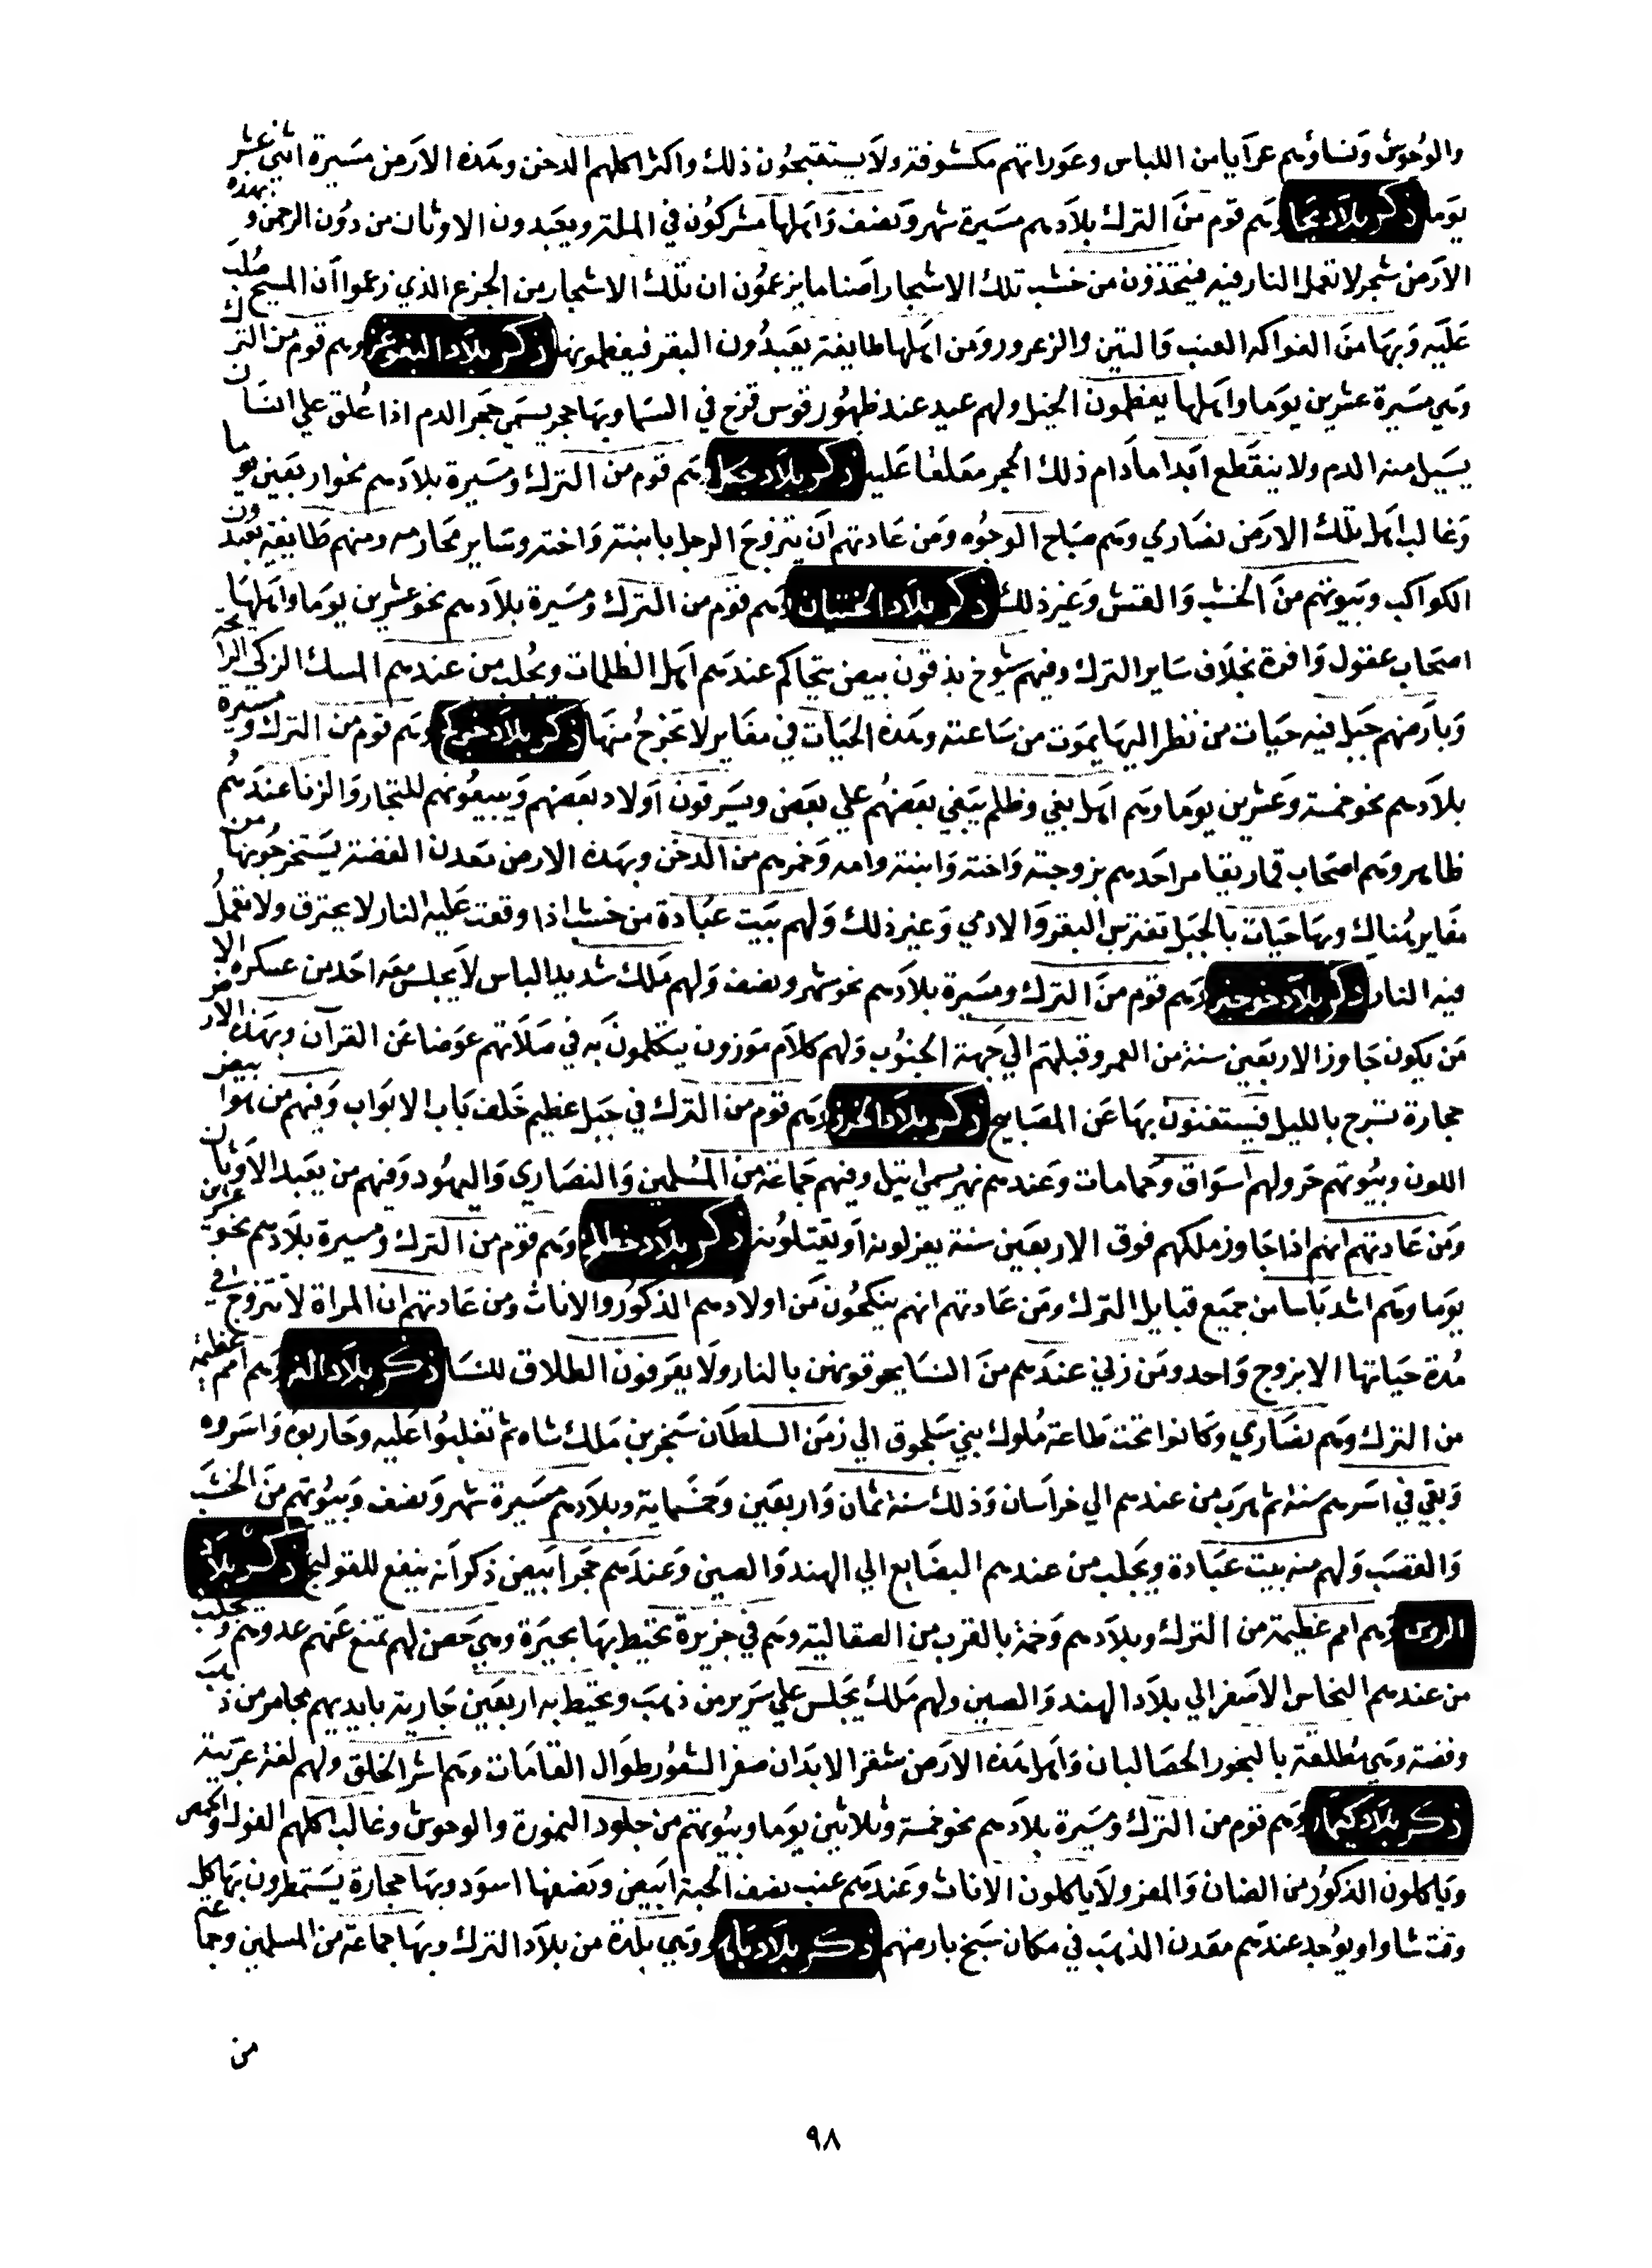 والوُحوش وَنساوُهم عرَايا من اللباس وعوراتهم مكشوفة ولاَ يستقبحُون ذلك واكثر اكلهم الدخن وهَذه الارَض مسَيرة اثني عشر
يوَما ذكر بلاَد بجا وهَم قوَم منَ الترك بلاَدهم مسَيرة شهر وَنصف وَاهلها مشركُون في الملة ويعَبدون الاوثان من دوُن الرحمن وبهذه
الارَض شجر لا تعمل النار فيه فيتخذون من خشب تلك الاشجار اصَناما يزعمُون ان تلك الاشجار من الجزع الذي زعموا اَن المسيح صُلبَ
عَليَه وَبهَا منَ الفواكه العنب وَالتين والزعرور ومَن اهلها طايفة يعَبدُون البقر فيعظمونها ذكر بلاَد البغوغز وهم قوم من الترك
وهي مسَيرة عشرين يوَما واهلها يعظمون الخيل ولهم عيد عند ظهوُر قوس قزح في السَما وبهَا حجر يسَمي حجَر الدم اذا عُلق علي انسَان
يسَيل منه الدم ولا ينقَطع ابَدا ماَدام ذلك الحجر معَلقا عَليه ذكر بلاَد بجكر وهَم قوم من الترك ومسَيرة بلاَدهم نحو اربعَين يوما
وَغالب اهل تلك الارَض نصَاري وهم صبَاح الوجُوه ومَن عَادتهم اَن يتزوجَ الرجل بابنته وَاخته وسَاير محَارمه ومنهم طَايفة تعبُد
الكواكب وبيَوتهم منَ الخشب وَالقش وعَير ذلك ذكر بلاَد الختيان وهَم قوَم من الترك ومَسيرة بلاَدهم نحو عشرين يوَما واهَلهَا
اصحَاب عقول وَافرة بخلاَف سَاير الترك وفيهم شيوخ بذقون بيض يتحَاكم عندهَم اهل الظلمات ويجُلب من عندهم المسك الزكي الرايحة
وَبارَضهم جَبل فيه حَيات من نظر اليهَا يموَت من سَاعته وهَذه الحيَات في مغَاير لا تخَرجُ منهَا ذكر بلاَد خركم وهَم قوم من الترك ومسيرة
بلاَدهم نحو خمَسة وعَشرين يوَما وهم اهل بغي وظلم يَبغي بعَضهُم علي بعَض ويسَرقون اَولاد بعَضهم وَيبيعُونهم للتجار وَالزنا عندَهُم
ظاهر وهَم اصحَاب قمار يقَامر احَدهم بزوجته وَاخته وَابنته وامه وَخمرهم من الدخن وبهَذه الارض معَدن الفضة يسَتخرجُونها من
مغَاير هُناك وبهَا حيَات بالجَبل تفترس البقر وَالادمي وَغير ذلك وَلهم بيَت عبَادة من خشب اذا وقعَت عَليه النار لا يحترق ولا تعَملُ
فيه النار ذكر بلاَد خرخيز وهَم قوم منَ الترك ومسَيرة بلاَدَهم نحو شهر ونصف وَلهم مَلك شديد الباس لاَ يجلس معَه احَد من عسكره الا
مَن يكون جَاوز الاربعَين سنة من العمر وقبلتهم الي جَهة الجنوُب وَلهم كلاَم موَزون يتكلمونَ به في صَلاَتهم عوَضا عَن القرآن وبهَذه الارض
حجارة تسَرج بالليل فيسَتغنون بهَا عَن المصَابيح ذكر بلاَد الخزز وهَم قوم من الترك في جبَل عظيم خَلف بَاب الابوَاب وفيهم من هوا بيض
اللون وبيُوتهم خر ولهم اسوَاق وحَمامات وعَندهم نهر يسمي اتيل وفيهم جَماعَة منَ المسُلمين وَالنصَاري وَاليهُود وَفيهم من يعَبد الاَوثان
ومَن عَادتهم انهم اذا جَاوز مَلكهم فوق الاربعَين سَنة يعزلونه اَو يقَتلوُنه ذكر بلاَد خطلخ وهَم قوم من الترك ومسيرة بلاَدهم نحو عشرين
يوَما وهَم اشد بَاسا من جميَع قبايل الترك ومَن عَادتهم انهم ينكحُون مَن اولادهم الذكوُر والاناث ومن عَادتهم ان المراة لا تتزوج في
مُدة حيَاتها الا بزوج وَاحد ومَن زني عندهَم منَ النسَا يحرقونهن بالنار ولاَ يعَرفون الطلاق للنسَا ذكر بلاَد الغز وهَم امم عظيمة
من الترك وهَم نصَاري وكَانوا تحت طَاعة مُلوك بني سَلجوق الي زمَن السلطاَن سَنجر بن مَلك شاه ثم تغلبوُا عَليه وحَاربوهُ وَاسَروه
وَبقي في اسَرهم سَنة ثم هرَب من عندهم الي خراسَان وَذلك سنة ثمان وَاربعَين وَخمسَماية وبلاَدهم مسَيرة شهر وَنصف وَبيوُتهم منَ الخشَب
وَالقصَب وَلهم منه بيت عبَادة ويجَلب من عندهم البضَايع الي الهند وَالصين وعَندهَم حجَر ابيَض ذكر اَنه ينفع للقولنج ذكر بلاَد
الروس وهَم امم عظيمة من الترك وبلاَدهم وَخمة بالقرب من الصقالية وهم في جزيرة تحَيط بهَا بحيرَة وهي حَصن لهم تمنع عَنهم عدوهم وتجلب
من عندهم النحَاس الاصَفر الي بلاَد الهند وَالصين ولهم مَلك يجَلس علي سَرير من ذهبَ ويحَيط به اربعَين جَارية بايديهم مجامر من ذهب
وفضة وهَي مُطلقة بالبخور الحصَا لبان وَاهل هَذه الارَض شقر الابدَان صفر الشعُور طوَال القامَات وهَم اشر الخلق ولهم لغة عرَبية
ذكر بلاَد كيمَار وهَم قوم من الترك ومسَيرة بلاَدهم نحو خمسة وثلاَثين يوَما وبيُوتهم من جلود النمورة والوحوش وغالب اكلهم الفول والحمص
وَياكلون الذكوُر من الضان وَالمعز ولاَ ياكلون الاناث وعَندهَم عنب نصف الحبة ابيَض ونصَفها اسوَد وبهَا حجارة يسَتمطرون بهَا كل
وقت شاوا ويوُجد عندهَم معَدن الذهبَ في مكان سَبخ بارضهم ذكر بلاَد بابه وهَي بلَدة من بلاَد الترك وبهَا جماعَة من المسلمين وجماعة
من
٩٨